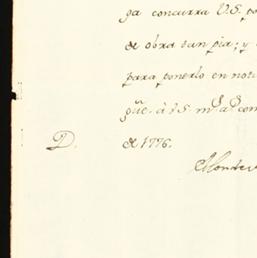 ga concurra V.S. po
de obra tan pia; y
para ponerlo en noti
gũe. à V.S. m.s a.s com
D. de 1776.
Montev